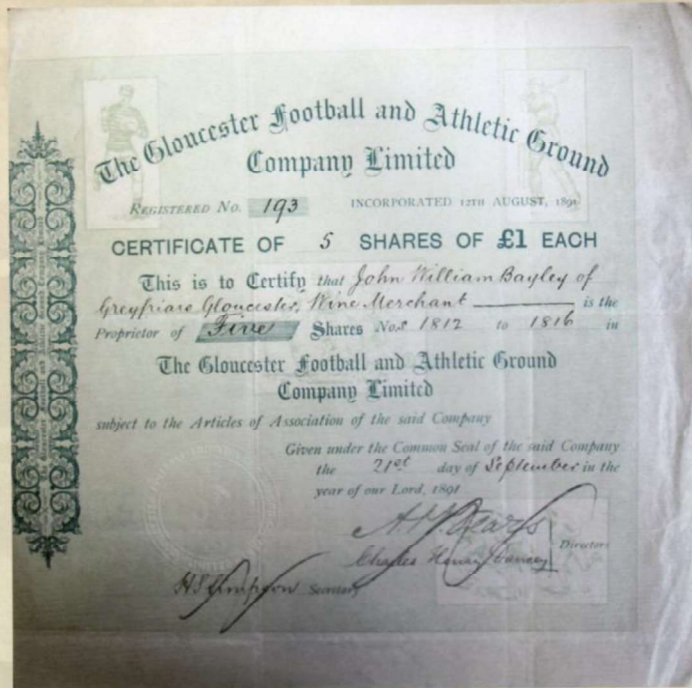 The Gloucester Football and Athletic Ground
Company Limited
REGISTERED No. 193 INCORPORATED 12TH AUGUST, 1891
CERTIFICATE OF 5 SHARES OF £1 EACH
This is to Certify that John William Bayley of
Greyfriars Gloucester, Wine Merchant is the
Proprietor of Five Shares Nos 1812 to 1816 in
The Gloucester Football and Athletic Ground
Company Limited
subject to the Articles of Association of the said Company
Given under the Common Seal of the said Company
the 21st day of September in the
year of our Lord, 1891
Charles Henry Dancey
Directors
Secretary